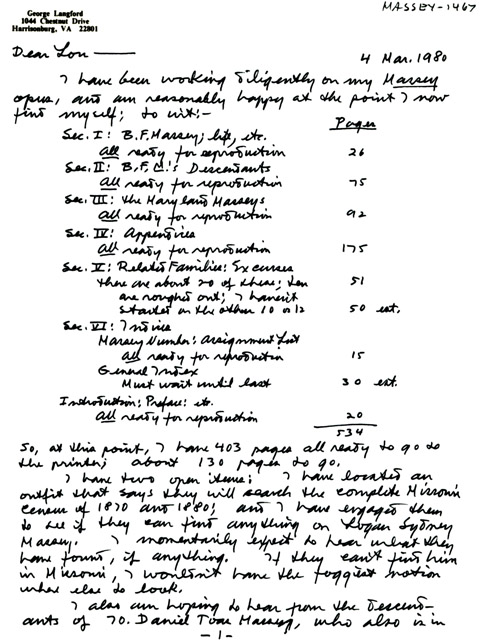 George Langford
1044 Chestnut Drive
Harrisonburg, VA 22801
MASSEY-1467
Dear Lou —
4 Mar. 1980
I have been working diligently on my Massey
opus, and am reasonably happy at the point I now
find myself; to wit:-
Pages
Sec. I: B.F. Massey; life, etc.
All ready for reproduction 26
Sec. II: B.F.M.'s Descendants
All ready for reproduction 75
Sec. III: the Maryland Masseys
All ready for reproduction 92
Sec. IV: Appendices
All ready for reproduction 175
Sec. V: Related Families: Excurses
there are about 20 of these; ten 51
are roughed out; I haven't
started on the other 10 or 12 50 est.
Sec. VI: Indices
Massey Number: Assignment List
All ready for reproduction 15
General Index
Must wait until last 30 est.
Introduction: Preface: etc.
All ready for reproduction 20
534
So, at this point, I have 403 pages all ready to go to
the printer; about 130 pages to go.
I have two open items: I have located an
outfit that says they will search the complete Missouri
census of 1870 and 1880; and I have engaged them
to see if they can find anything on Logan Sydney
Massey. I momentarily expect to hear what they
have found, if anything. If they can't find him
in Missouri, I wouldn't have the foggiest notion
where else to look.
I also am hoping to hear from the descend-
ants of 70. Daniel Toas Massey, who also is in
-1-